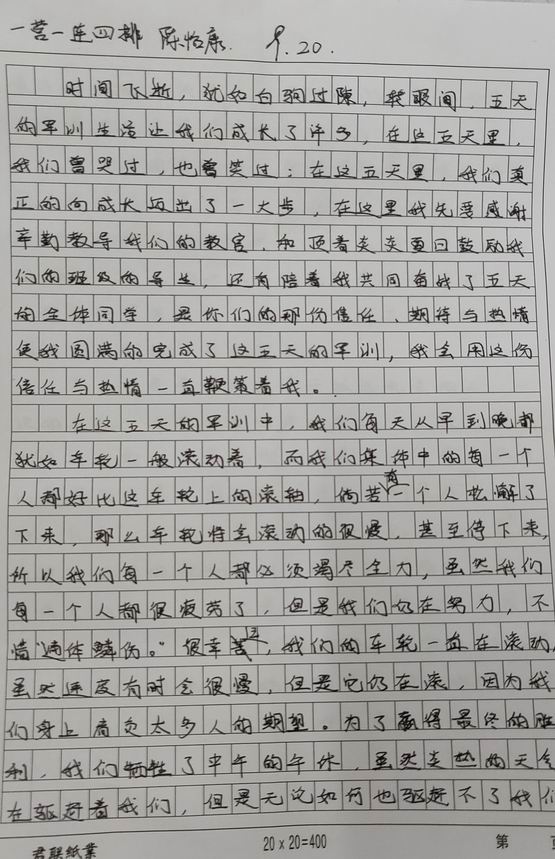 一营一连四排 陈怡康. 9.20.
时间飞逝，犹如白驹过隙，转眼间，五天
的军训生活让我们成长了许多，在这五天里，
我们曾哭过，也曾笑过；在这五天里，我们真
正的向成长迈出了一大步，在这里我先要感谢
辛勤教导我们的教官，和顶着炎炎夏日鼓励我
们的班级的导生，还有陪着我共同奋战了五天
的全体同学，是你们的那份信任、期待与热情
使我圆满的完成了这五天的军训，我会用这份
信任与热情一直鞭策着我。
在这五天的军训中，我们每天从早到晚都
犹如车轮一般滚动着，而我们集体中的每一个
人都好比这车轮上的滚轴，倘若有一个人松懈了
下来，那么车轮将会滚动的很慢，甚至停下来，
所以我们每一个人都必须竭尽全力，虽然我们
每一个人都很疲劳了，但是我们仍在努力，不
惜“遍体鳞伤。”很幸运，我们的车轮一直在滚动，
虽然速度有时会很慢，但是它仍在滚，因为我
们身上肩负太多人的期望。为了赢得最终的胜
利，我们牺牲了中午的午休，虽然炎热的天气
在驱赶着我们，但是无论如何也驱赶不了我们
君联纸业 20×20=400 第